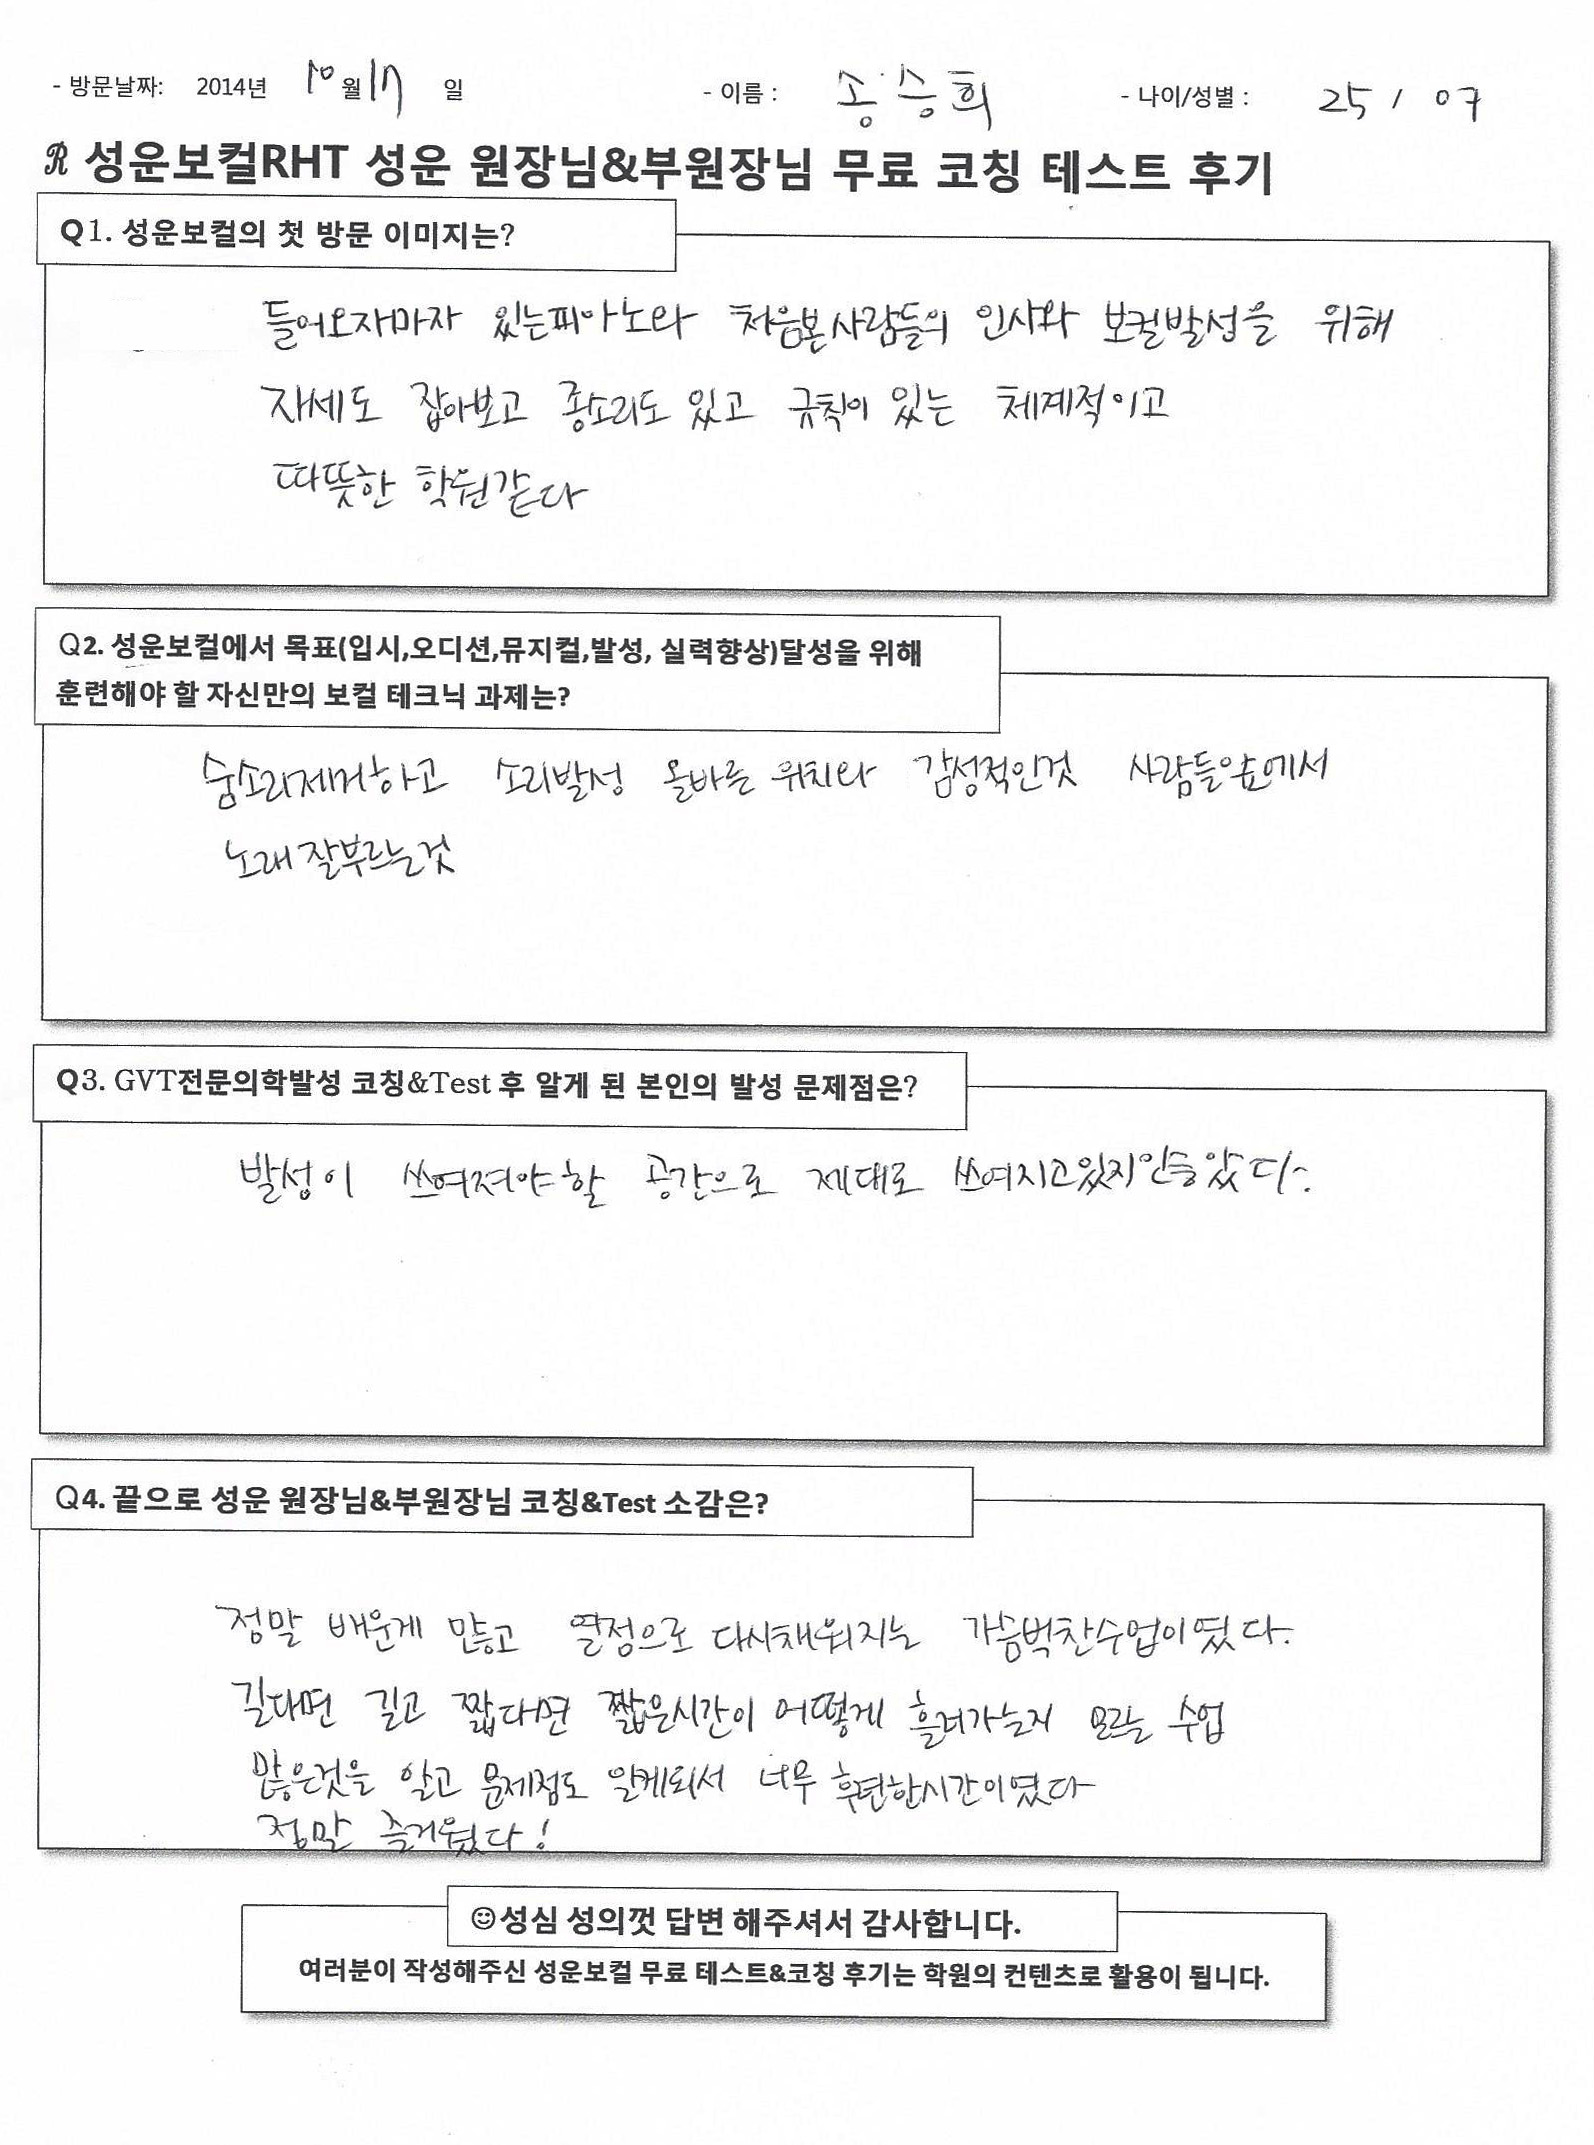 - 방문날짜: 2014년 10월 17 일 - 이름 : 송승희 - 나이/성별 : 25 / 여
ℛ 성운보컬RHT 성운 원장님&부원장님 무료 코칭 테스트 후기
Q1. 성운보컬의 첫 방문 이미지는?
들어오자마자 있는피아노와 처음본사람들의 인사와 보컬발성을 위해
자세도 잡아보고 종소리도 있고 규칙이 있는 체계적이고
따뜻한 학원같다
Q2. 성운보컬에서 목표(입시,오디션,뮤지컬,발성, 실력향상)달성을 위해
훈련해야 할 자신만의 보컬 테크닉 과제는?
숨소리제거하고 소리발성 올바른 위치와 감성적인것 사람들앞에서
노래잘부르는것
Q3. GVT전문의학발성 코칭&Test 후 알게 된 본인의 발성 문제점은?
발성이 쓰여져야할 공간으로 제대로
Q4. 끝으로 성운 원장님&부원장님 코칭&Test 소감은?
정말 배운게 많고 열정으로 다시채워지는 가슴벅찬수업이였다.
길다면 길고 짧다면 짧은시간이 어떻게 흘러가는지 모르는 수업
많은것을 알고 문제점도 알게되서 너무 후련한시간이였다
정말 즐거웠다!
☺성심 성의껏 답변 해주셔서 감사합니다.
여러분이 작성해주신 성운보컬 무료 테스트&코칭 후기는 학원의 컨텐츠로 활용이 됩니다.